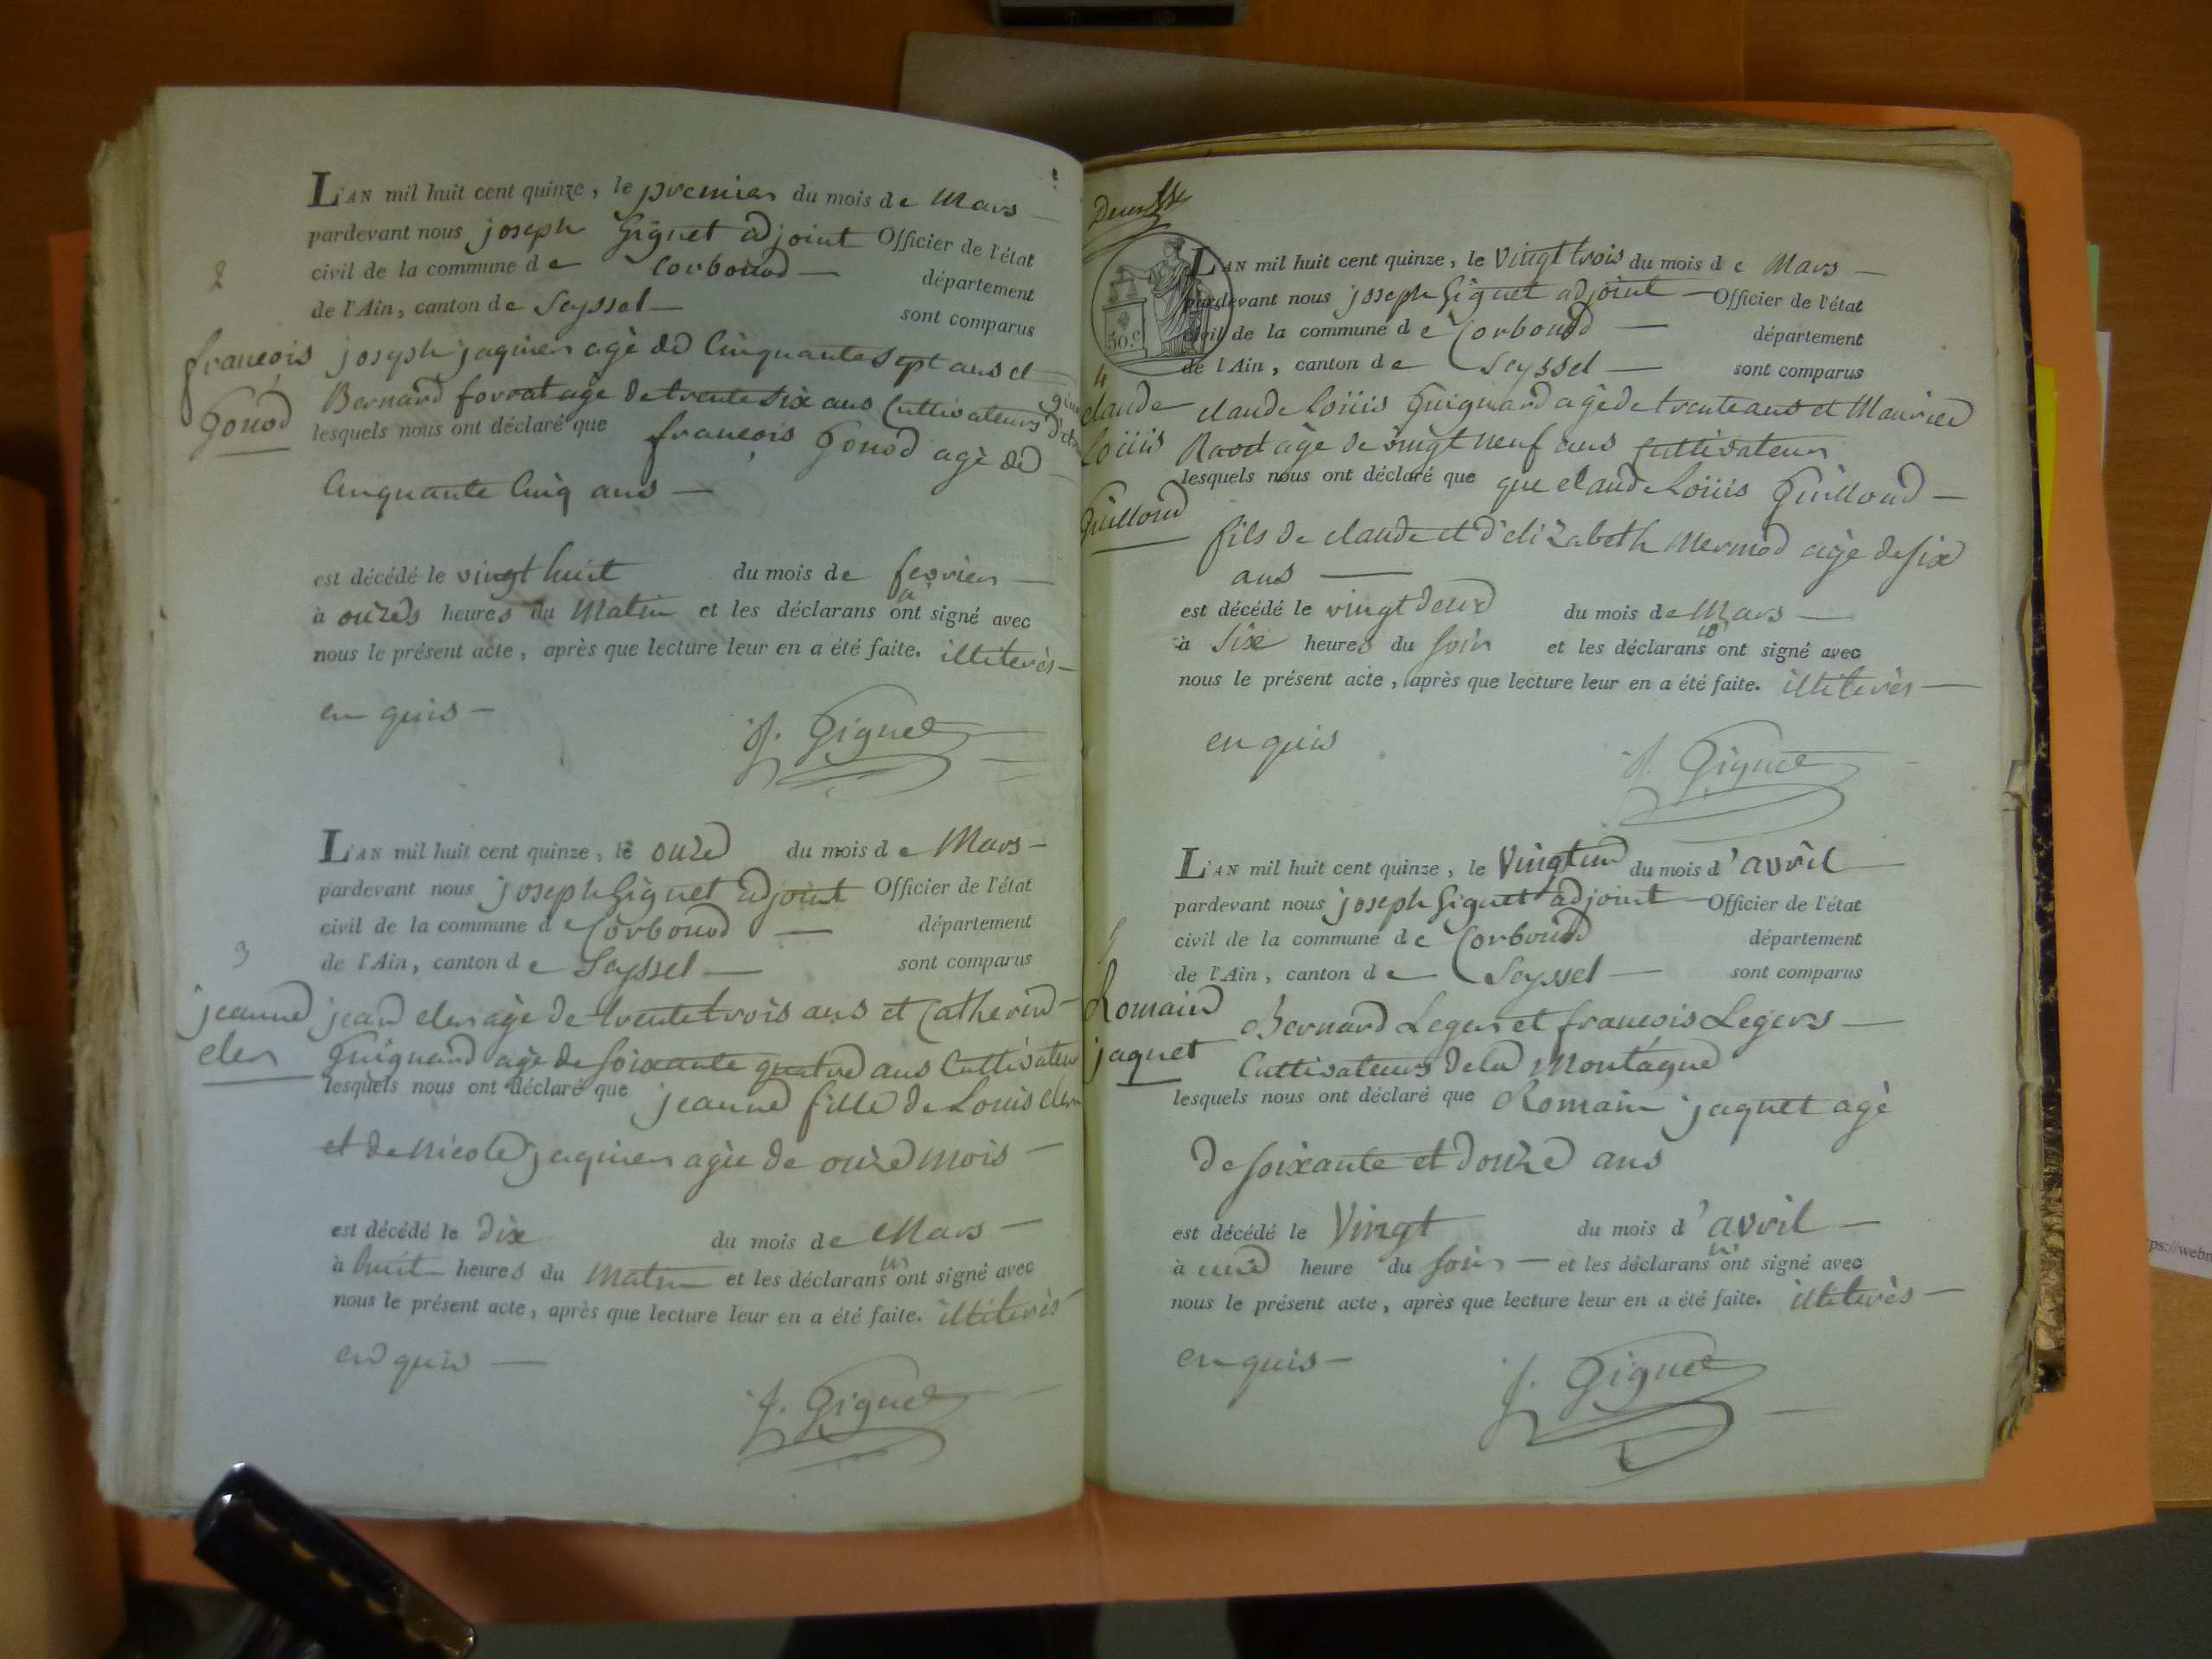 2
françois
Gonod
L'AN mil huit cent quinze, le premier du mois de Mars
pardevant nous joseph Giguet adjoint Officier de l'état
civil de la commune de Corbonod département
de l'Ain, canton de Seyssel sont comparus
joseph jaquier agé de Cinquante sept ans et
Bernard forrat agé de trente six ans Cultivateurs
lesquels nous ont déclaré que françois Gonod agé de
Cinquante Cinq ans
est décédé le vingt huit du mois de fevrier
à onzes heures du Matin et les déclarans ont signé avec
nous le présent acte, après que lecture leur en a été faite. illiterès
en quis
J. Giguet
3
jeanne
cler
L'AN mil huit cent quinze, le onze du mois de Mars
pardevant nous joseph Giguet adjoint Officier de l'état
civil de la commune de Corbonod département
de l'Ain, canton de Seyssel sont comparus
jean cler agé de trente trois ans et Catherin
Guignard agé de soixante quatre ans Cultivateur
lesquels nous ont déclaré que jeanne fille de Louis cler
et de Nicole jaquier agée de onze mois
est décédé le dix du mois de Mars
à huit heures du matin et les déclarans ont signé avec
nous le présent acte, après que lecture leur en a été faite. illiterès
en quis
J. Giguet
30 c
4
claude
loüis
Guilloud
L'AN mil huit cent quinze, le vingt trois du mois de Mars
pardevant nous joseph Giguet adjoint Officier de l'état
civil de la commune de Corbonod département
de l'Ain, canton de Seyssel sont comparus
claude loüis Guignard agé de trente ans et Maurice
agé de vingt neuf ans Cultivateur
lesquels nous ont déclaré que que claude loüis Guilloud
fils de claude et d'elizabeth Mermod agé de six
ans
est décédé le vingt deux du mois de Mars
à Six heures du soir et les déclarans ont signé avec
nous le présent acte, après que lecture leur en a été faite. illiterès
en quis
J. Giguet
Romain
jaquet
L'AN mil huit cent quinze, le vingt un du mois d'avril
pardevant nous joseph Giguet adjoint Officier de l'état
civil de la commune de Corbonod département
de l'Ain, canton de Seyssel sont comparus
Bernard Leger et françois Legers
Cultivateurs de la Montagne
lesquels nous ont déclaré que Romain jaquet agé
de soixante et douze ans
est décédé le Vingt du mois d'avril
à une heure du soir et les déclarans ont signé avec
nous le présent acte, après que lecture leur en a été faite. illiterès
en quis
J. Giguet